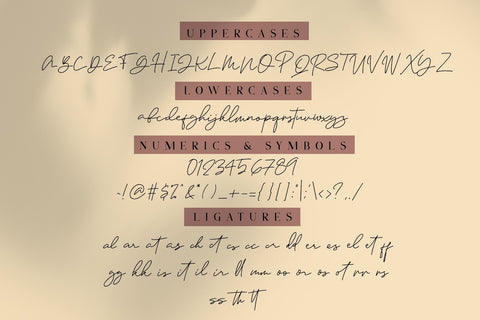 UPPERCASES
ABCDEFGHIJKLMNOPQRSTUVWXYZ
LOWERCASES
abcdefghijklmnopqrstuvwxyz
NUMERICS & SYMBOLS
0123456789
~!@#$%^&*()_+-={}[]:"|;'\<>?,./
LIGATURES
al an at as ch ct cs cc cr dd er es el et ff
gg kk is it il ir ll mm oo on os ot rr rs
ss th tt